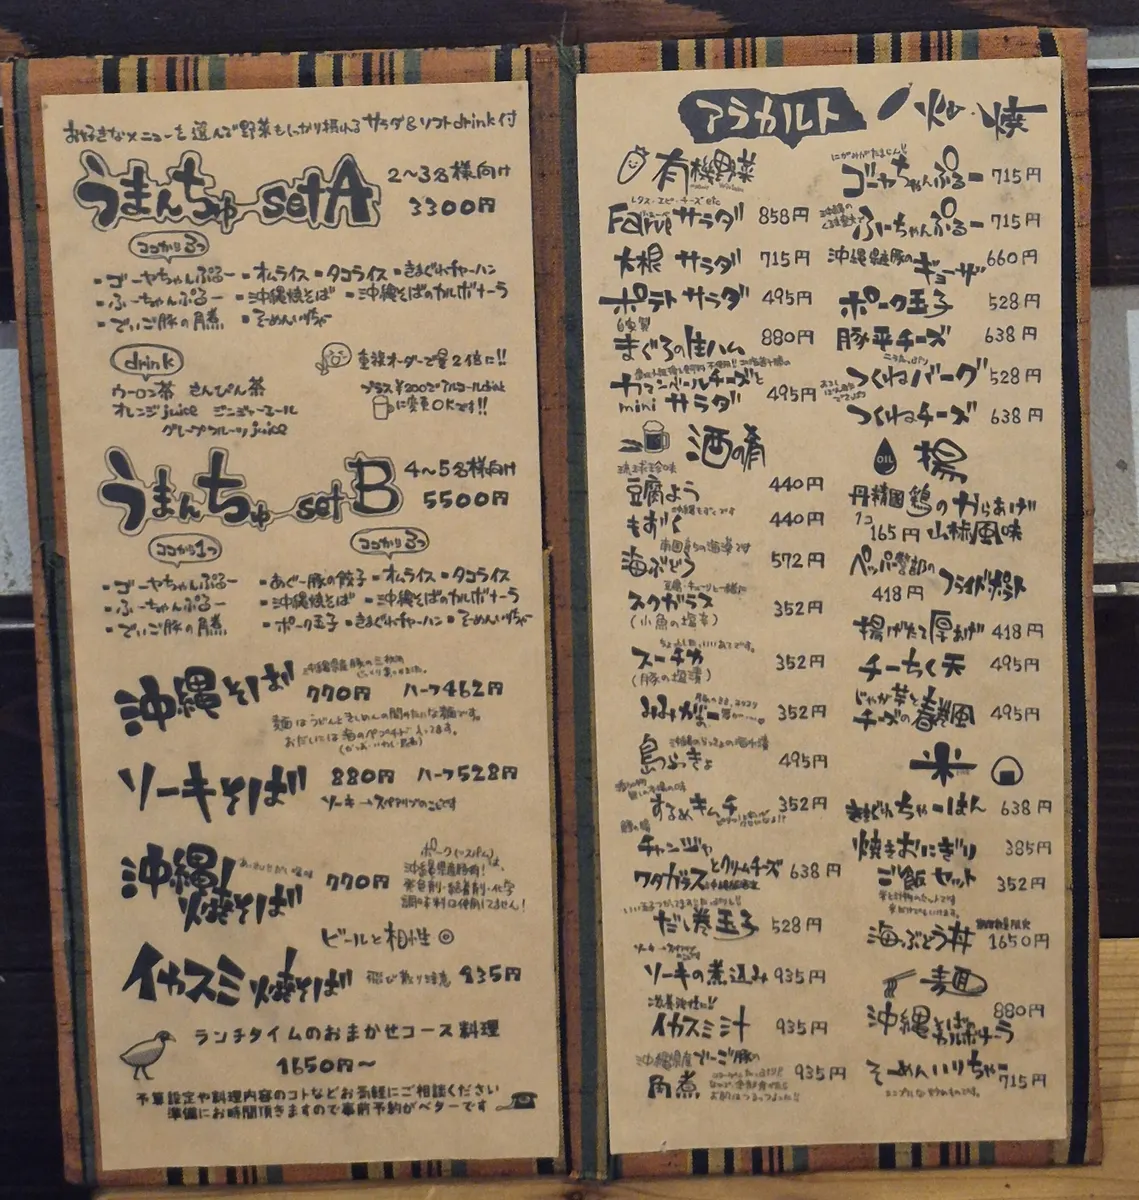 お好きなメニューを選んで野菜もしっかり摂れるサラダ&ソフトdrink付
うまんちゅーsetA
2〜3名様向け
3300円
ココから3つ
・ゴーヤちゃんぷるー ・オムライス ・タコライス ・きまぐれチャーハン
・ふーちゃんぷるー ・沖縄焼そば ・沖縄そばのカルボナーラ
・でいご豚の角煮 ・そーめんいりちゃー
drink
ウーロン茶 さんぴん茶
オレンジjuice ジンジャーエール
グレープフルーツjuice
重複オーダーで量2倍に!!
プラス¥200でアルコールdrink
に変更OKです!!
うまんちゅーsetB
4〜5名様向け
5500円
ココから1つ
ココから3つ
・ゴーヤちゃんぷるー ・あぐー豚の餃子 ・オムライス ・タコライス
・ふーちゃんぷるー ・沖縄焼そば ・沖縄そばのカルボナーラ
・でいご豚の角煮 ・ポーク玉子 ・きまぐれチャーハン ・そーめんいりちゃー
沖縄そば
770円 ハーフ462円
麺はうどんときしめんの間のたいな麺です。
ソーキそば 880円 ハーフ528円
ソーキ→スペアリブのことです
沖縄!焼そば 770円
ポーク(=スパム)は、
沖縄県産豚肉!
発色剤・結着剤・化学
調味料は使用してません!
ビールと相性◎
イカスミ焼そば 飛び散り注意 835円
ランチタイムのおまかせコース料理
1650円〜
予算設定や料理内容のコトなどお気軽にご相談ください
準備にお時間頂きますので事前予約がベターです
アラカルト
有機野菜
レタス・エビ・チーズetc
Farveサラダ 858円
大根サラダ 715円
ポテトサラダ 495円
自家製
まぐろの生ハム 880円
カマンベールチーズと
miniサラダ 495円
酒の肴
琉球珍味
豆腐よう 440円
もずく 440円
海ぶどう 572円
スクガラス 352円
(小魚の塩辛)
スーチカ 352円
(豚の塩漬)
みみがー 352円
島らっきょ 495円
するめキムチ 352円
チャンジャ
ワタガラスとクリームチーズ 638円
だし巻玉子 528円
ソーキの煮込み 935円
イカスミ汁 935円
沖縄県産でいご豚の
角煮 935円
炒・焼
ゴーヤちゃんぷるー 715円
ふーちゃんぷるー 715円
沖縄県豚のギョーザ 660円
ポーク玉子 528円
豚平チーズ 638円
つくねバーグ 528円
つくねチーズ 638円
OIL
揚
丹精國鶏のからあげ
1コ 165円 山椒風味
ペッパー警部のフライドポテト
418円
揚げたて厚あげ 418円
チーちく天 495円
じゃが芋と
チーズの春巻風 495円
米
きまぐれちゃーはん 638円
焼きおにぎり 385円
ご飯セット 352円
海ぶどう丼 1650円
麺
沖縄そばカルボナーラ 880円
そーめんいりちゃー 715円